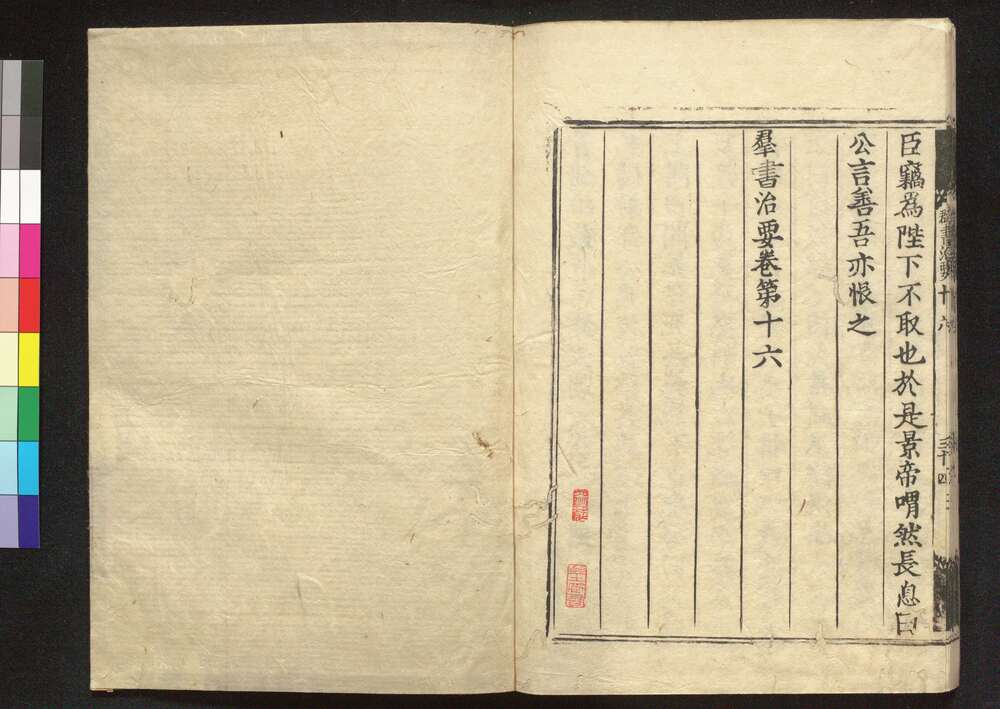 臣竊為陛下不取也於是景帝喟然長息曰
公言善吾亦恨之
羣書治要卷第十六